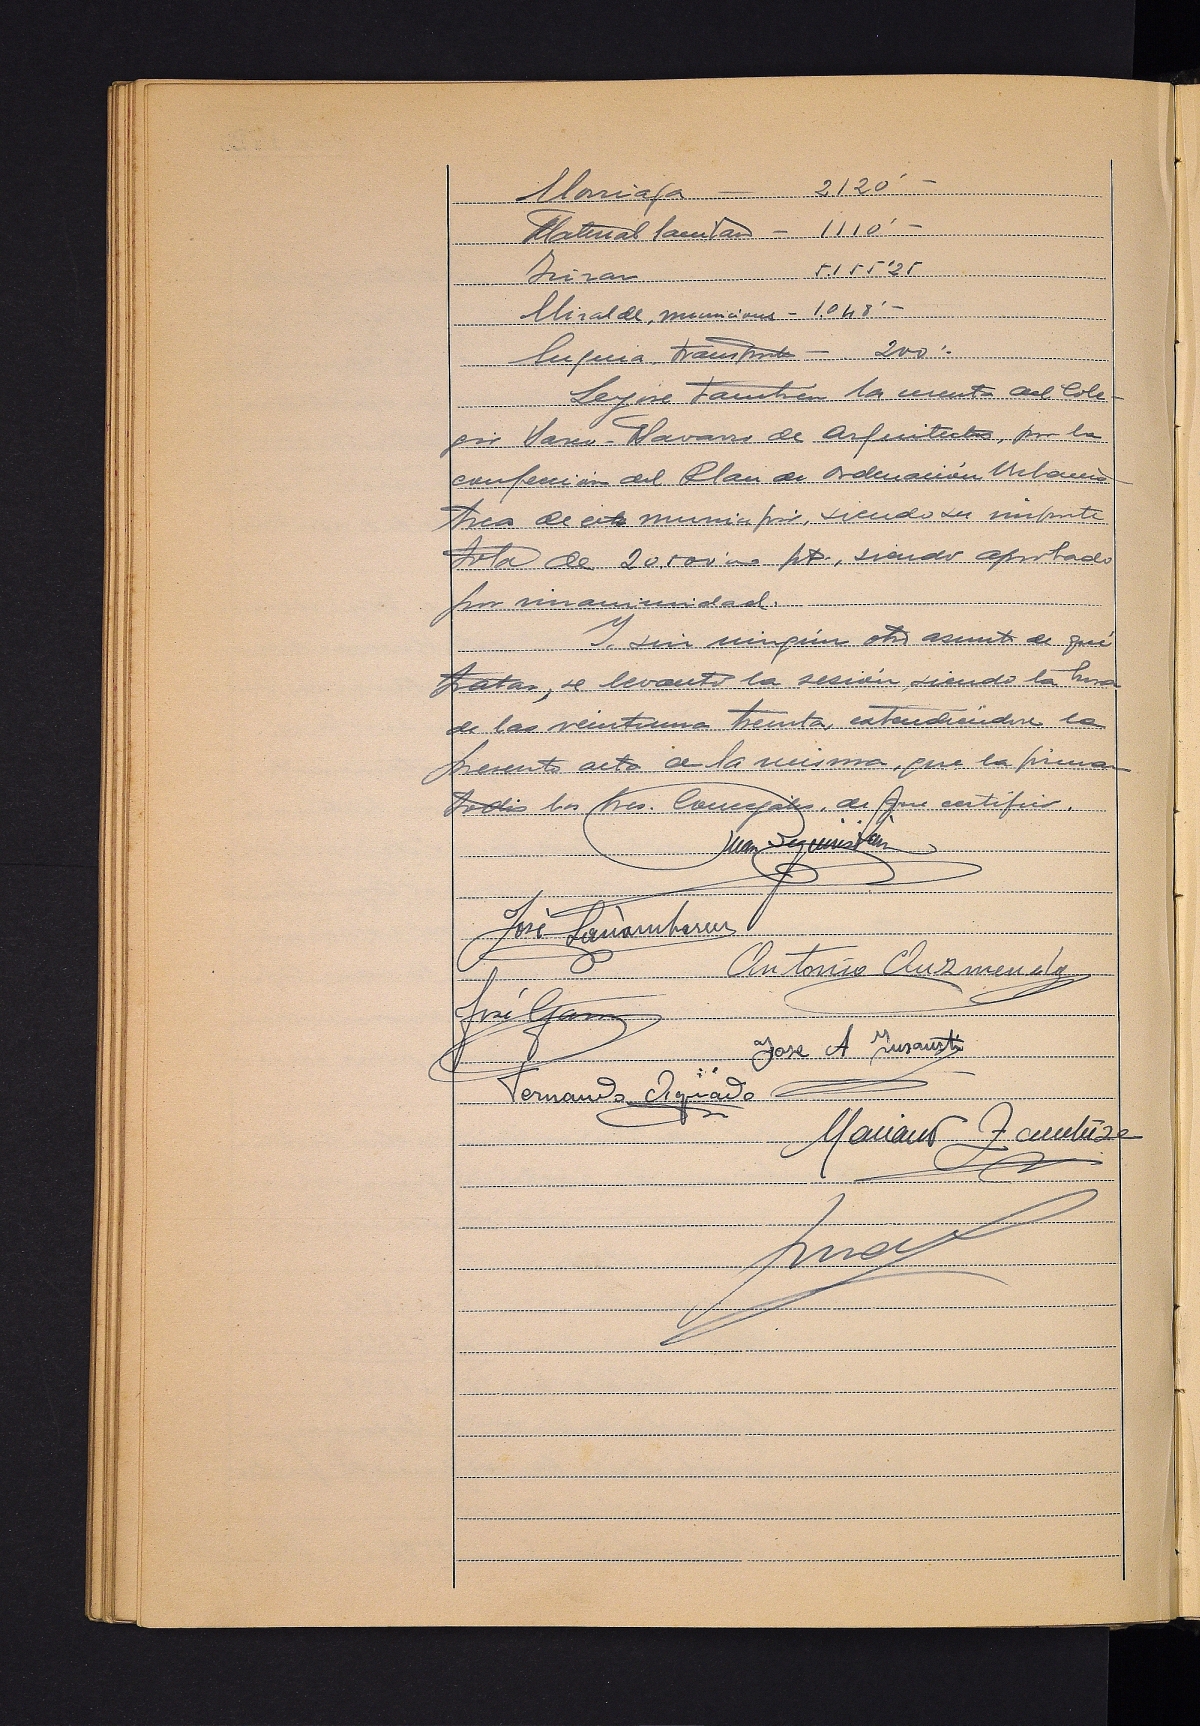 2.120'-
Material Sanitario - 1110'-
5.155'25
municiones - 1.048'-
transporte - 200'-
Leyóse también la cuenta del Cole-
gio Vasco-Navarro de Arquitectos, por la
confección del Plan de Ordenación Urbanís-
tica de este municipio, siendo su importe
total de 20.500'00 pts, siendo aprobado
por unanimidad.
Y sin ningún otro asunto de qué
tratar, se levantó la sesión, siendo la hora
de las veintiuna treinta, extendiéndose la
presente acta de la misma, que la firman
todos los Sres. Concejales, de que certifico.
Juan
José
Antonio Auzmendi
José
Jose A
Fernando Aguado
Mariano